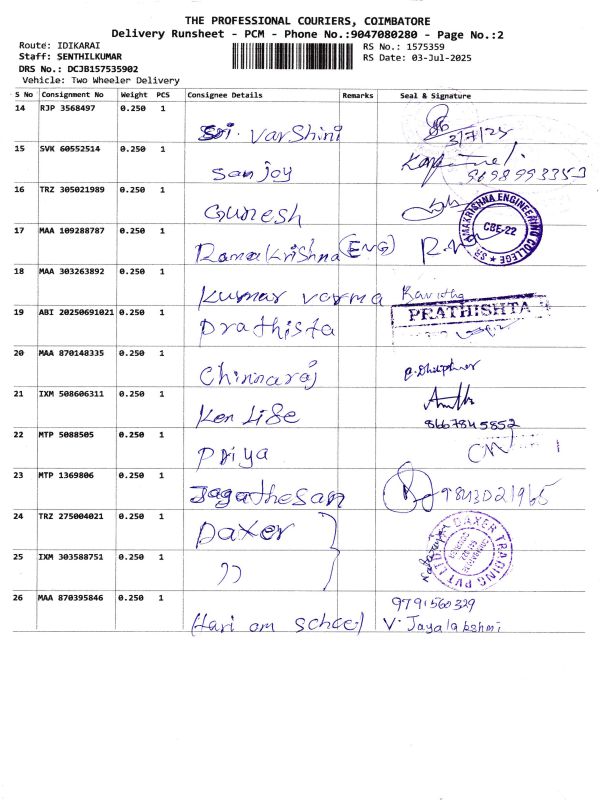 THE PROFESSIONAL COURIERS, COIMBATORE
Delivery Runsheet - PCM - Phone No.:9047080280 - Page No.:2
Route: IDIKARAI
RS No.: 1575359
Staff: SENTHILKUMAR
RS Date: 03-Jul-2025
DRS No.: DCJB157535902
Vehicle: Two Wheeler Delivery
S No Consignment No Weight PCS Consignee Details Remarks Seal & Signature
14 RJP 3568497 0.250 1 Sri. Varshini 3/7/25
15 SVK 60552514 0.250 1 Sanjoy
16 TRZ 305021989 0.250 1 Gunesh
17 MAA 109288787 0.250 1 Ramakrishna (ENG) SRI RAMAKRISHNA ENGINEERING COLLEGE CBE-22
18 MAA 303263892 0.250 1 Kumar varma Kavitha
19 ABI 20250691021 0.250 1 Prathista PRATHISHTA
20 MAA 870148335 0.250 1 Chinnaraj
21 IXM 508606311 0.250 1 Ken Life 8667845852
22 MTP 5088505 0.250 1 Priya
23 MTP 1369806 0.250 1 Jagathesan 9843021965
24 TRZ 275004021 0.250 1 DAXER DAXER TRADING PVT LTD
25 IXM 303588751 0.250 1 ))
26 MAA 870395846 0.250 1 Hari om school 9791560329
V. Jayalakshmi